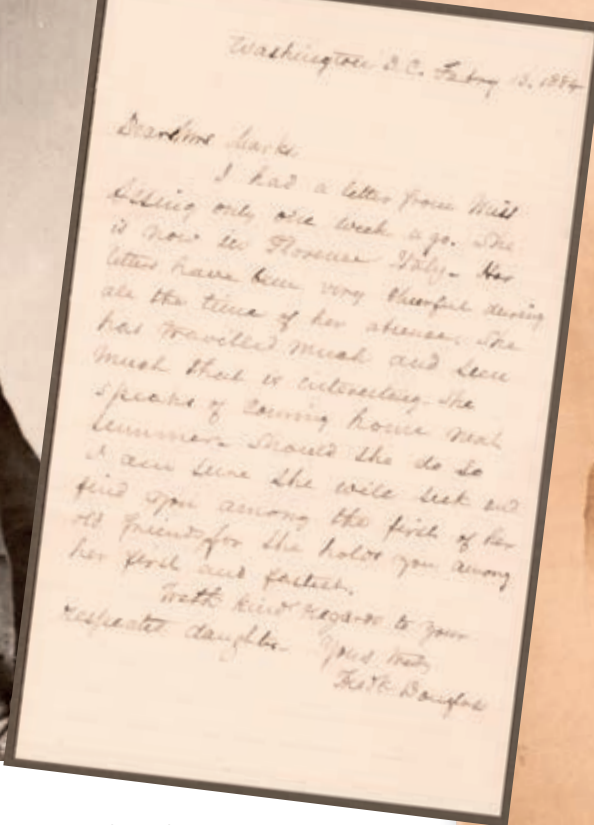 Washington D.C. Febry 13. 1884
Dear Mrs Marks.
I had a letter from Miss
Assing only one week ago. She
is now in Florence Italy. Her
letters have been very cheerful during
all the time of her absence. She
has travelled much and seen
much that is interesting. She
speaks of coming home next
summer. Should she do so
I am sure she will seek and
find you among the first of her
old friends for she holds you among
her first and fastest.
With kind regards to your
respected daughter. Yours truly
Fredk Douglass